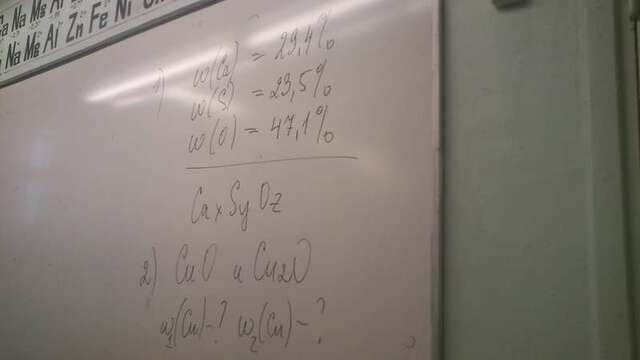 Ca Na Mg Al
Na Mg Al Zn Fe Ni
1) w(Ca) = 29,4%
w(S) = 23,5%
w(O) = 47,1%
CaxSyOz
2) CuO и Cu2O
w1(Cu)-? w2(Cu)-?